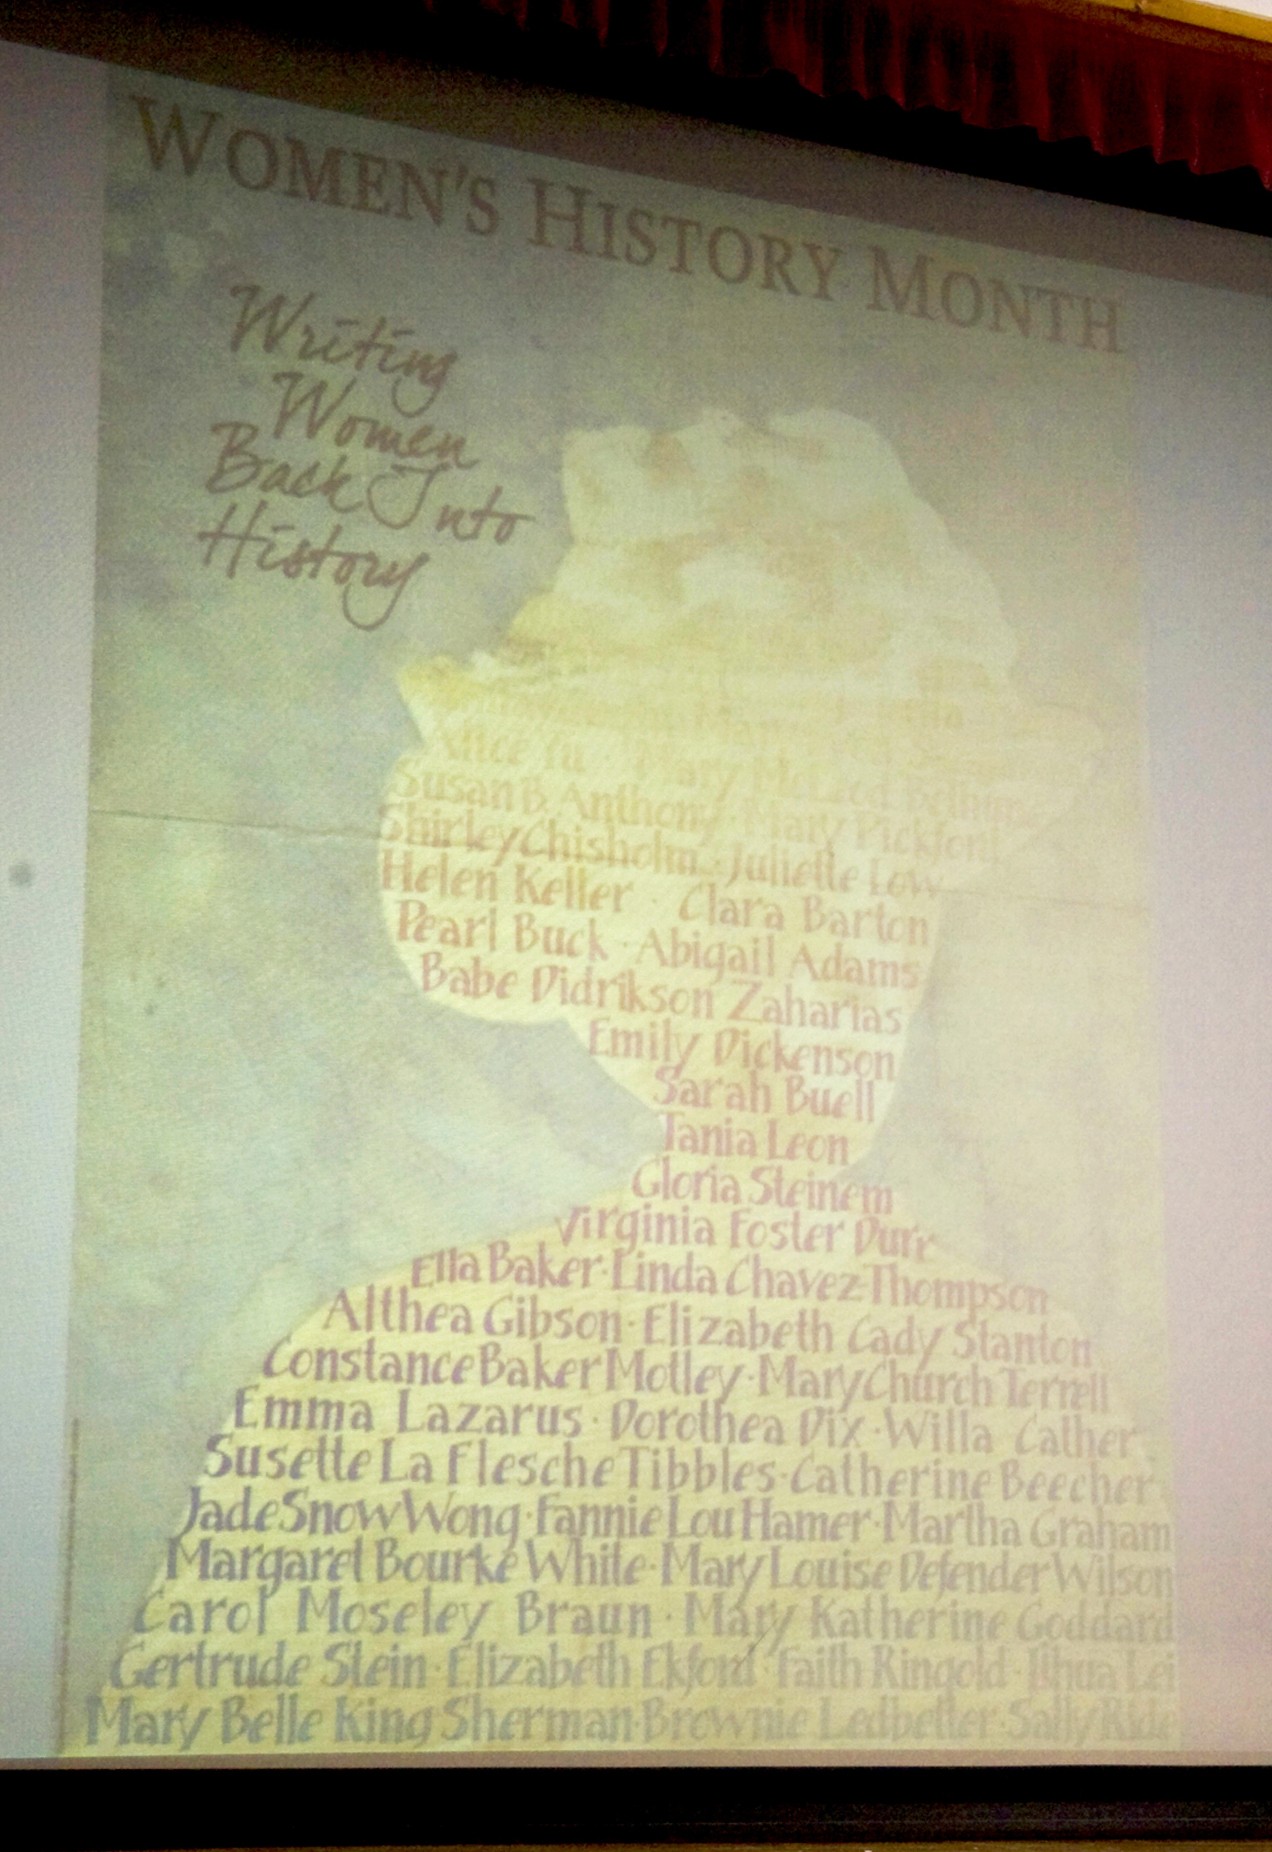 WOMEN'S HISTORY MONTH
Writing
Women
Back Into
History
Alice Yu · Mary McLeod Bethune
Susan B. Anthony · Mary Pickford
Shirley Chisholm · Juliette Low
Helen Keller · Clara Barton
Pearl Buck · Abigail Adams
Babe Didrikson Zaharias
Emily Dickenson
Sarah Buell
Tania Leon
Gloria Steinem
Virginia Foster Durr
Ella Baker · Linda Chavez-Thompson
Althea Gibson · Elizabeth Cady Stanton
Constance Baker Motley · Mary Church Terrell
Emma Lazarus · Dorothea Dix · Willa Cather ·
Susette La Flesche Tibbles · Catherine Beecher
Jade Snow Wong · Fannie Lou Hamer · Martha Graham
Margaret Bourke White · Mary Louise Defender Wilson
Carol Moseley Braun · Mary Katherine Goddard
Gertrude Stein · Elizabeth Ekford · Faith Ringold · Lei
Mary Belle King Sherman · Brownie Ledbetter · Sally Ride